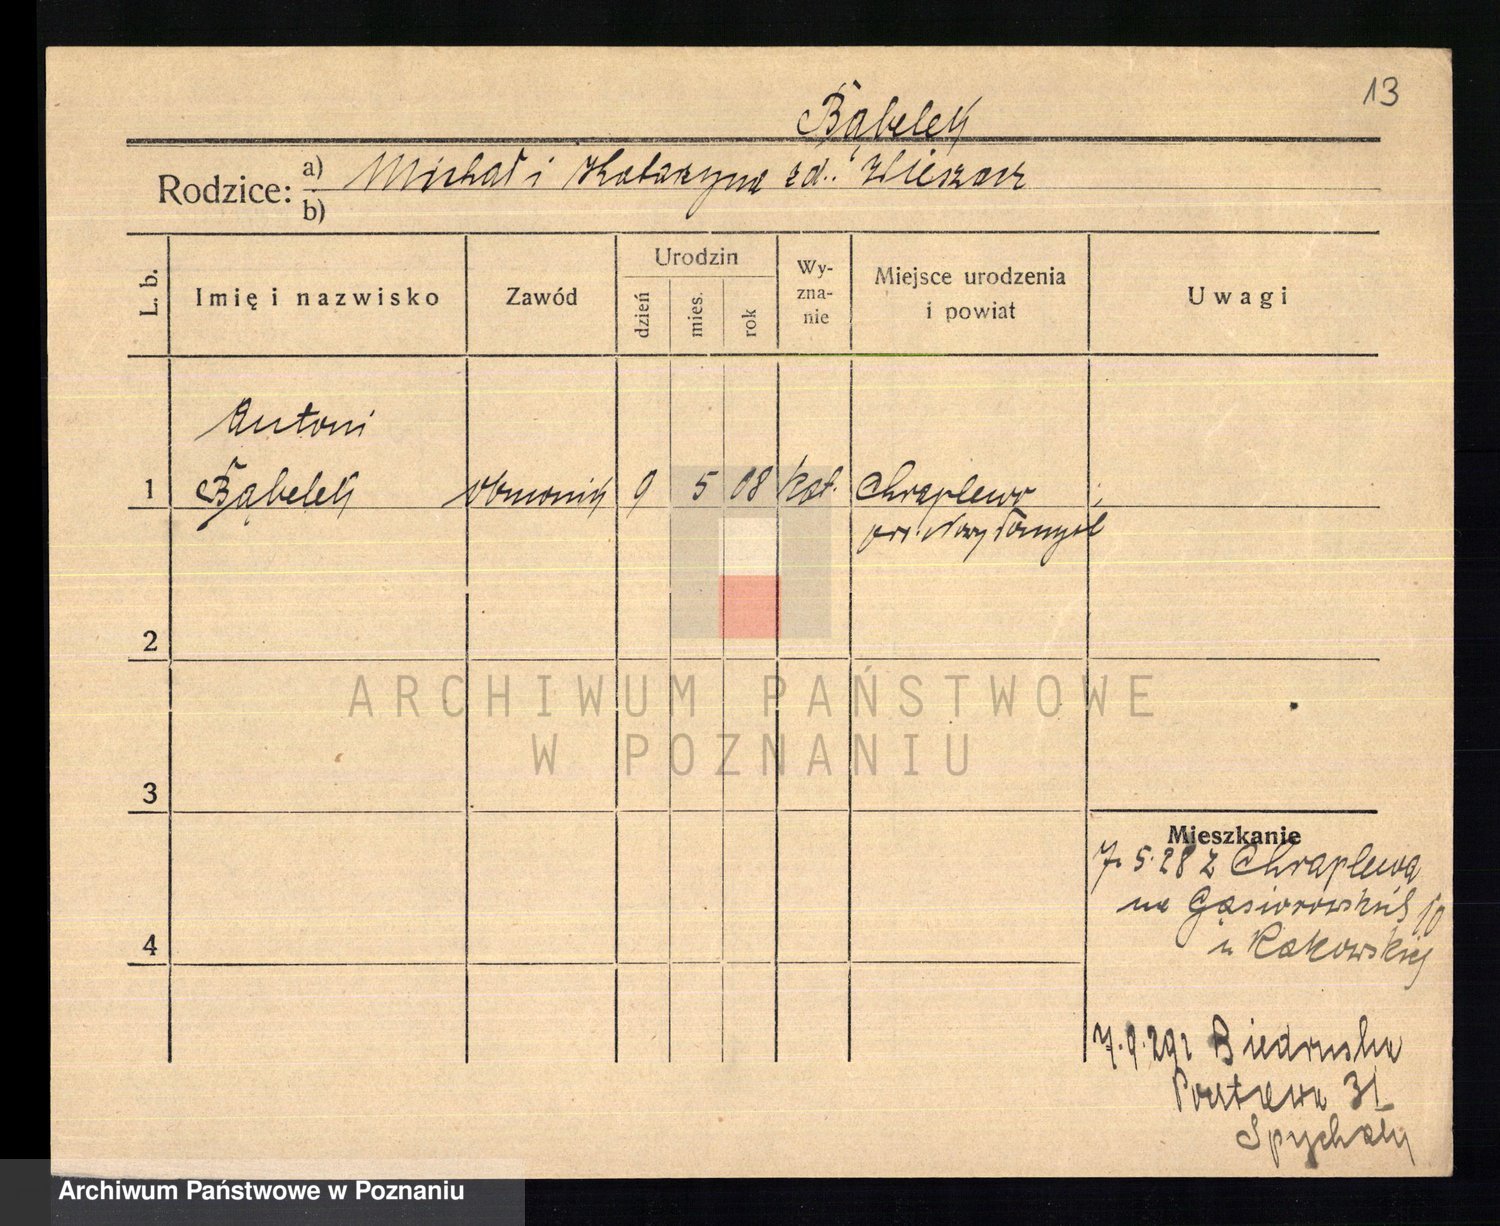 13
Bąbelek
Rodzice: a) Michał i Katarzyna zd.
b)
L. b.
Imię i nazwisko
Zawód
Urodzin
dzień
mies.
rok
Wy-
zna-
nie
Miejsce urodzenia
i powiat
Uwagi
Antoni
1 Bąbelek 9 5 08 kat. Chraplewo
Nowy Tomyśl
2
ARCHIWUM PAŃSTWOWE
W POZNANIU
3
Mieszkanie
7. 5. 28 z Chraplewa
na Gąsiorowskich 10
u Rakowskiej
4
7. 9. 29 z Biedruska
31
Spychały
Archiwum Państwowe w Poznaniu